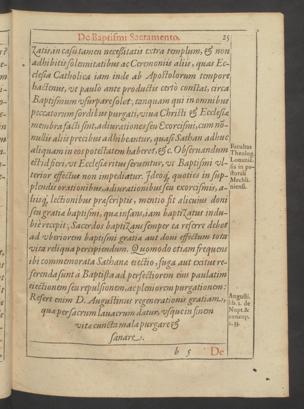 De Baptismi Sacramento. 25
zatis, in casu tamen necessitatis extra templum, & non
adhibitis solemnitatibus ac Ceremoniis aliis, quas Ec-
clesia Catholica iam inde ab Apostolorum tempore
hactenus, ut paulò ante productis certò constat, circa
Baptismum usurpare solet; tanquam qui in omnibus
peccatorum sordibus purgati, viva Christi & Ecclesiæ
membra facti sint, adiurationes seu Exorcismi, cum nõ-
nullis aliis precibus adhibeantur, quasi Sathan adhuc
aliquam in eos potestatem haberet, &c. Observandum
est id fieri, ut Ecclesiæ ritus serventur, ut Baptismi ul-
terior effectus non impediatur. Ideoq́, quoties in sup-
plendis orationibus, adiurationibus seu exorcismis, a-
liisq́, lectionibus præscriptis, mentio fit alicuius doni
seu gratiæ baptismi, quæ infans, iam baptizatus indu-
biè recipit, Sacerdos baptizans semper ea referre debet
ad uberiorem baptismi gratiæ aut doni effectum tota
vita reliqua percipiendum. Quomodo etiam frequens
ibi commemorata Sathanæ eiectio, fuga aut exitus re-
ferenda sunt à Baptista ad perfectiorem eius paulatim
eiectionem seu repulsionem, ac pleniorem purgationem:
Refert enim D. Augustinus regenerationis gratiam,
qua per sacrum lavacrum datur, usque in finem
vitæ cuncta mala purgare &
sanare.
Facultas
Theolog.
Lovanie.
Mechli-
niensi.
Augusti.
lib. 1. de
Nupt. &
concup.
c. 33.
b 5 De